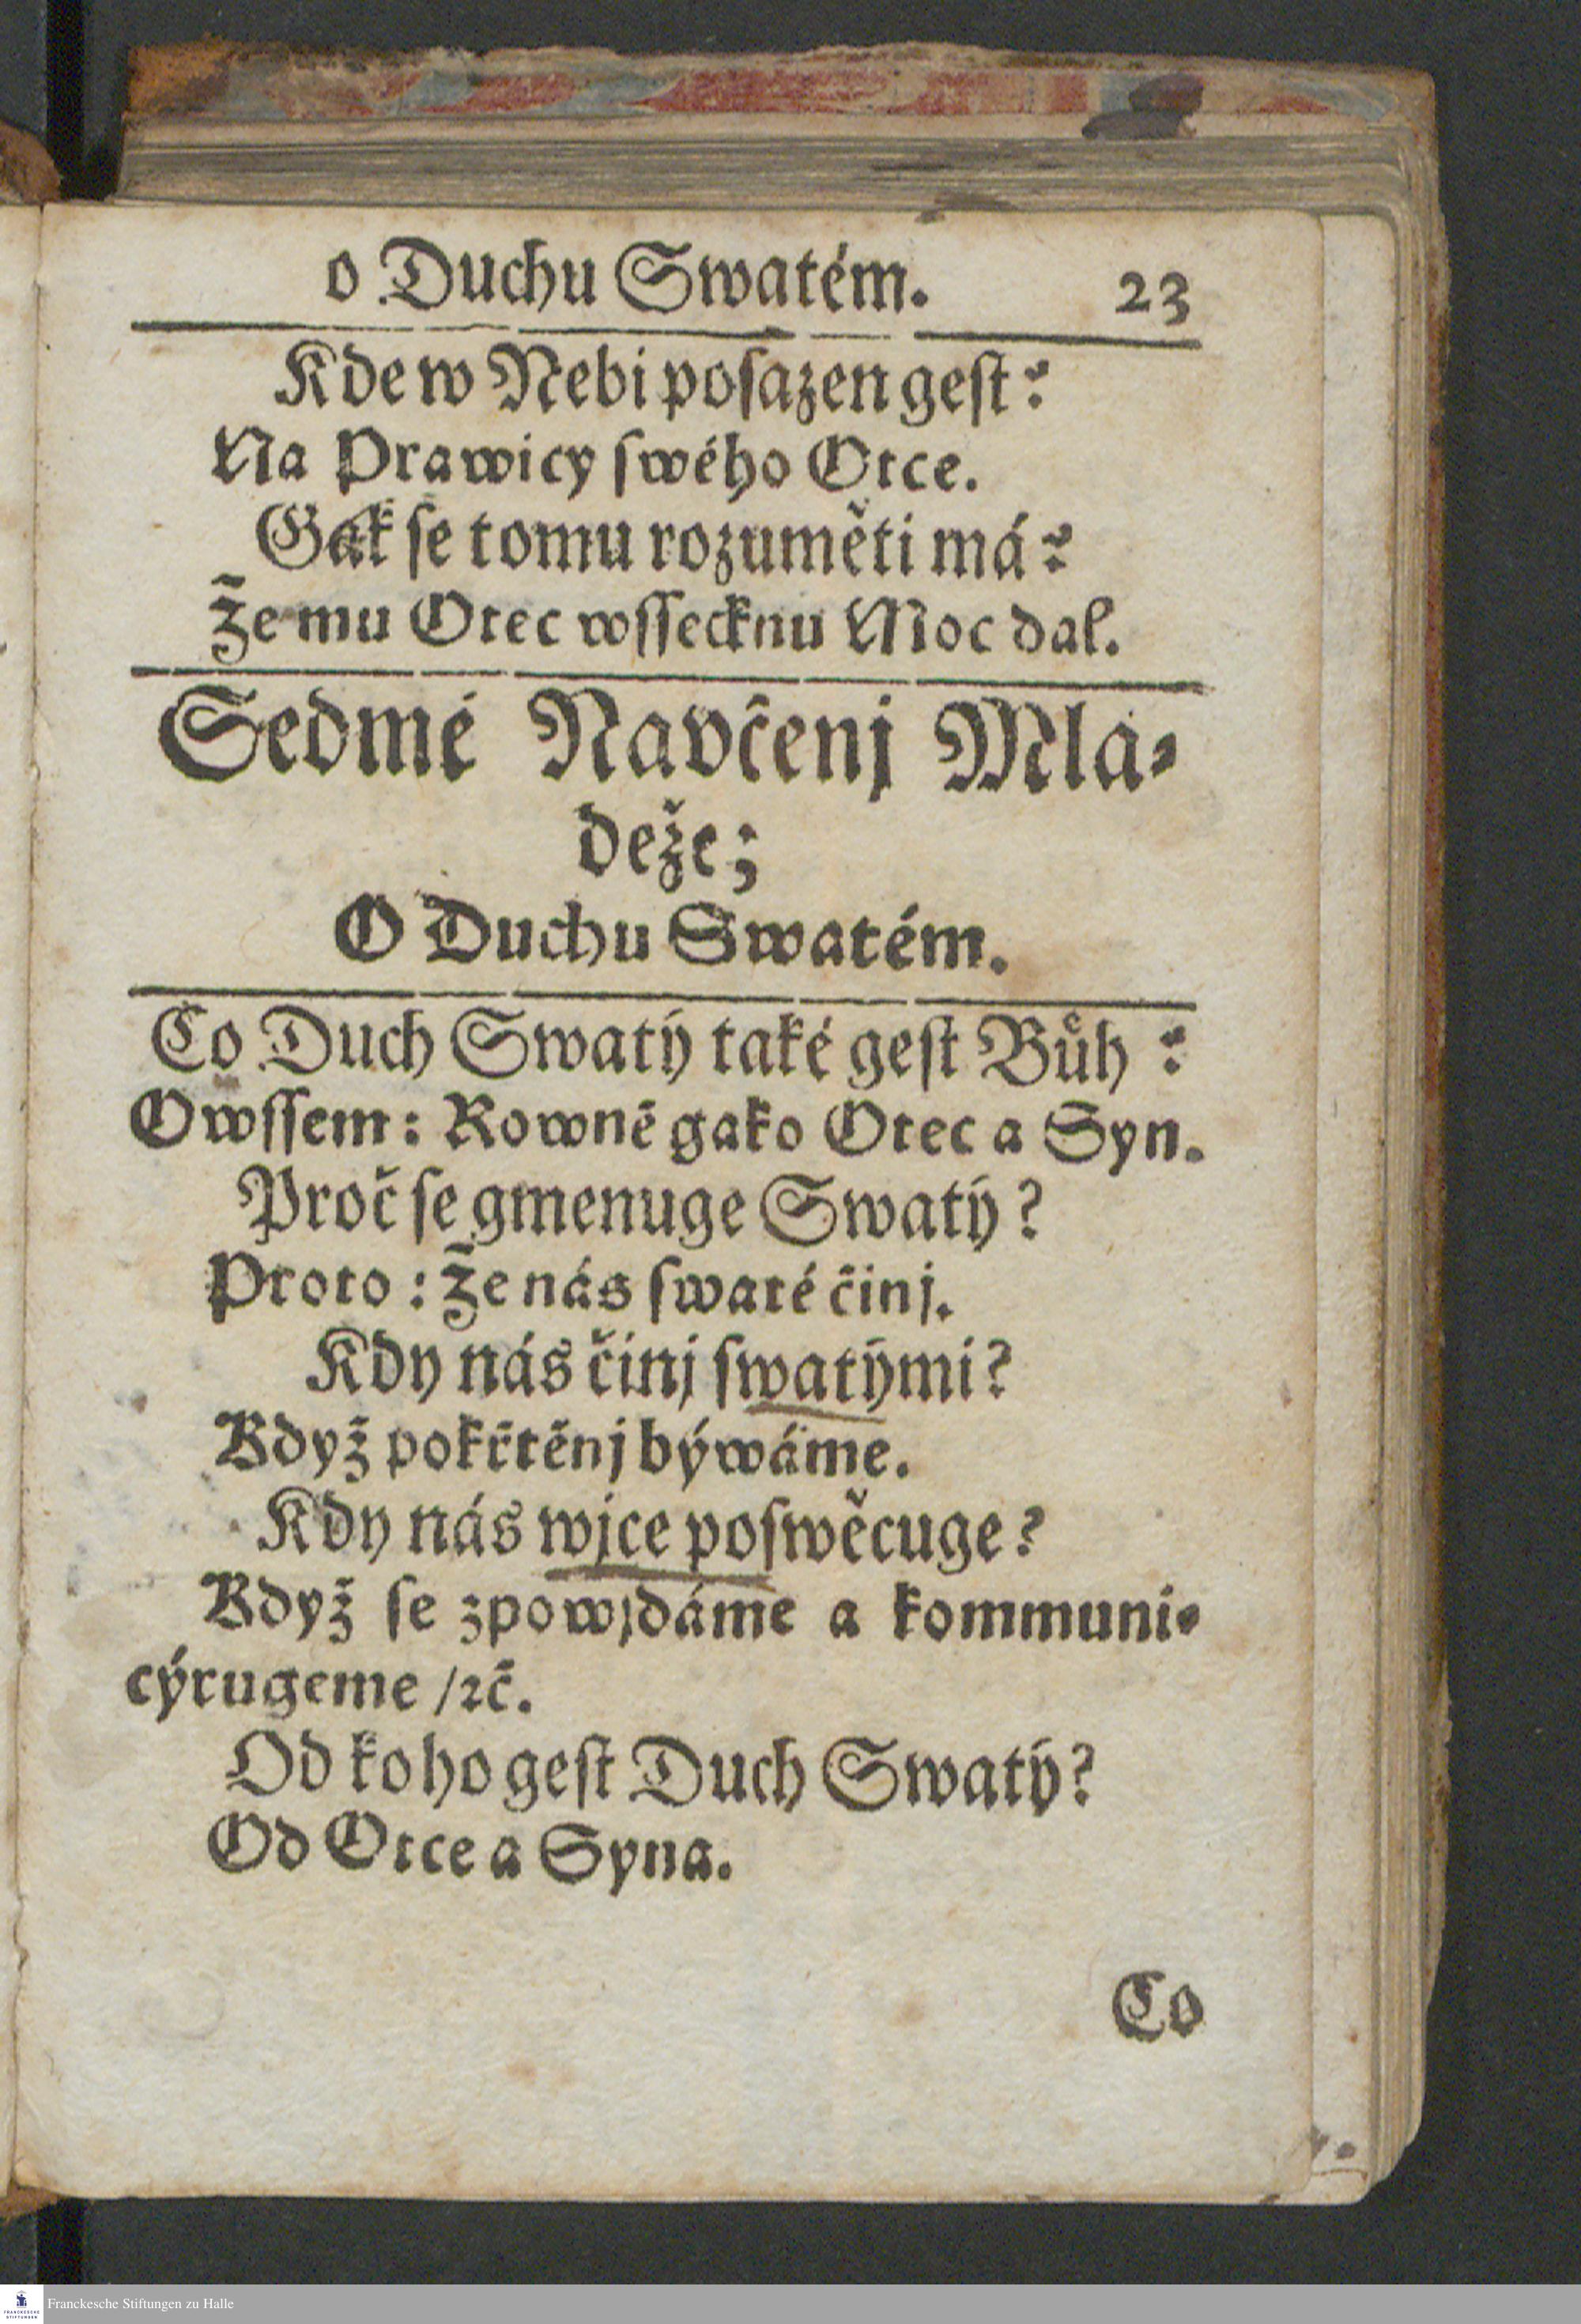 o Duchu Swatém. 23
Kde w Nebi posazen gest?
Na Prawicy swého Otce.
Gak se tomu rozuměti má?
Že mu Otec wssecknu Moc dal.
Sedmé Navčenj Mlá-
deže;
O Duchu Swatém.
Co Duch Swatý také gest Bůh?
Owssem: Rowně gako Otec a Syn.
Proč se gmenuge Swatý?
Proto: Že nás swaté činj.
Kdy nás činj swatými?
Když pokřtěnj býwáme.
Kdy nás wjce poswěcuge?
Když se zpowjdáme a kommuni-
cýrugeme /ꝛč.
Od koho gest Duch Swatý?
Od Otce a Syna.
Co
Franckesche Stiftungen zu Halle